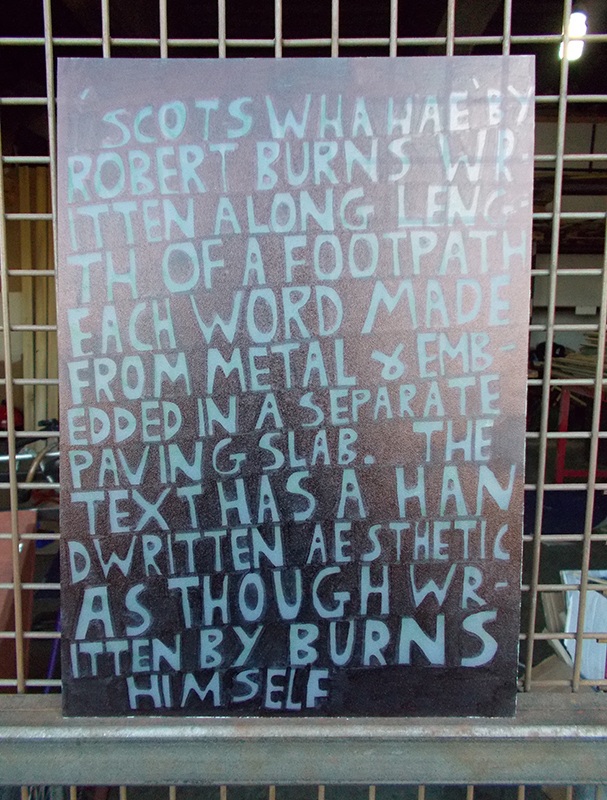 'SCOTS WHA HAE' BY
ROBERT BURNS WR-
ITTEN ALONG LENG-
TH OF A FOOTPATH
EACH WORD MADE
FROM METAL & EMB-
EDDED IN A SEPARATE
PAVING SLAB. THE
TEXT HAS A HAN
DWRITTEN AESTHETIC
AS THOUGH WR-
ITTEN BY BURNS
HIMSELF